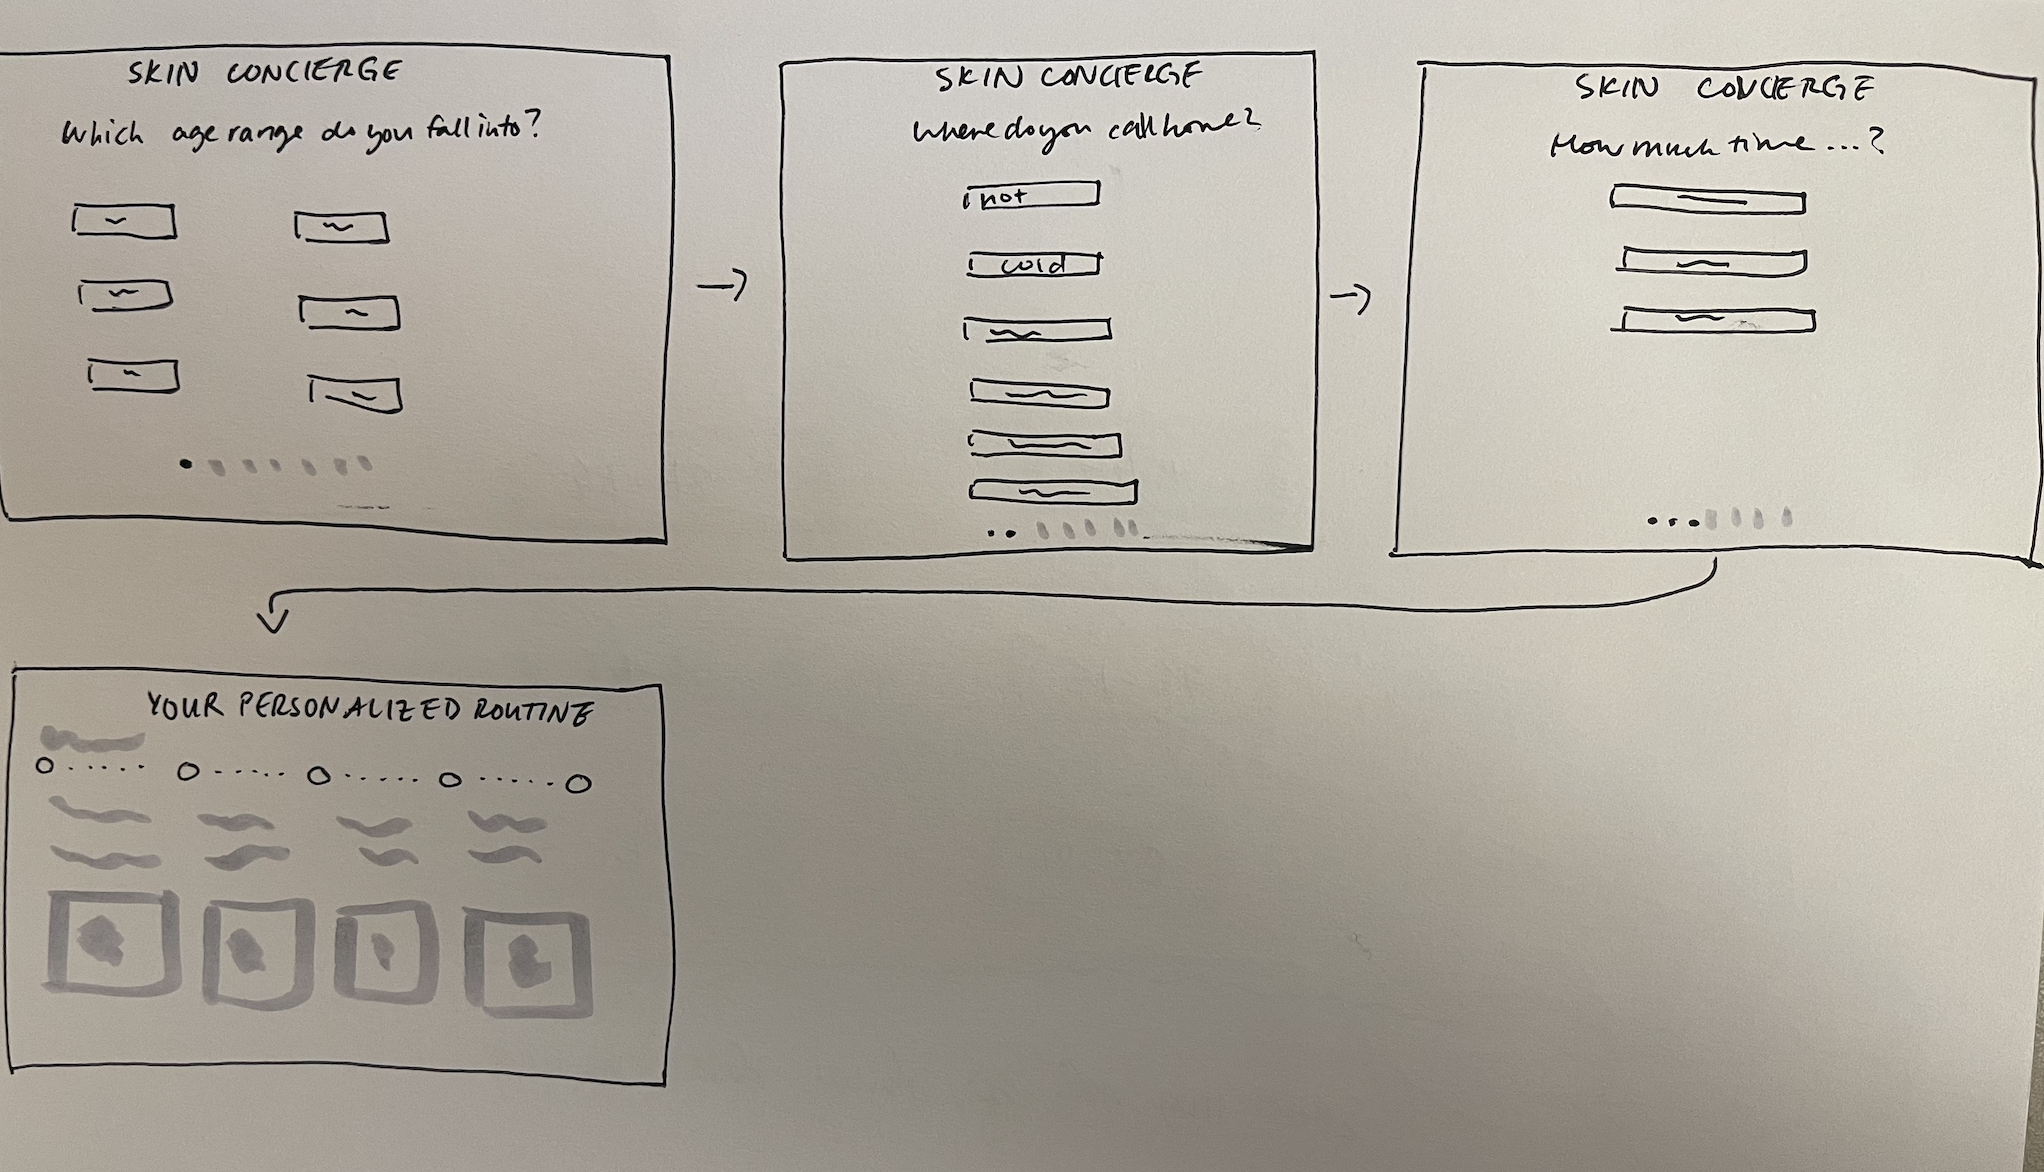 SKIN CONCIERGE
Which age range do you fall into?
SKIN CONCIERGE
Where do you call home?
hot
cold
SKIN CONCIERGE
How much time ...?
YOUR PERSONALIZED ROUTINE